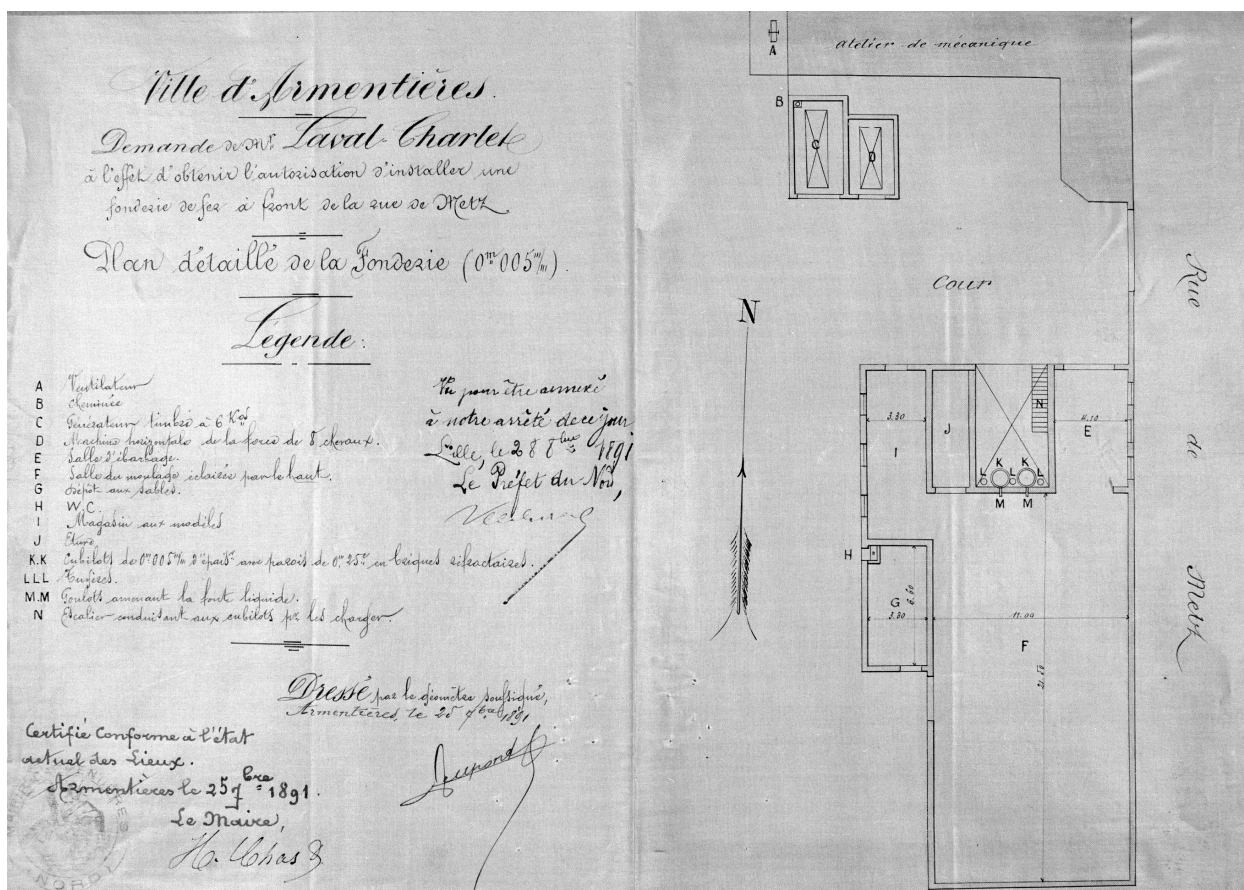 Ville d'Armentières.
Demande de Mr. Laval-Charlet
à l'effet d'obtenir l'autorisation d'installer une
fonderie de fer à front de la rue de Metz.
Plan détaillé de la Fonderie (0m005m/m).
Légende:
A Ventilateur
B Cheminée
C Générateur timbré à 6 Kos
D Machine horizontale de la force de 8 chevaux.
E Salle d'ébarbage.
F Salle du moulage éclairée par le haut.
G Dépôt aux sables.
H W.C.
I Magasin aux modèles
J Etuve
K.K Cubilots de 0m005m/m d'épaisr avec parois de 0m25c en briques réfractaires.
LLL Tuyères.
M.M Goulots amenant la fonte liquide.
N Escalier conduisant aux cubilots pr les charger.
Vu pour être annexé
à notre arrêté de ce jour
Lille, le 28 8bre 1891
Le Préfet du Nord,
Dressé par le géomètre soussigné,
Armentières, le 25 7bre 1891
Dupond
Certifié Conforme à l'état
actuel des Lieux.
Armentières le 25 7bre 1891.
Le Maire,
NORD
atelier de mécanique
A
B
C
D
Cour
Rue de Metz
N
3.30
I
J
N
4.10
E
L K L K L
M M
H
G
3.30
6.60
11.00
F
21.50